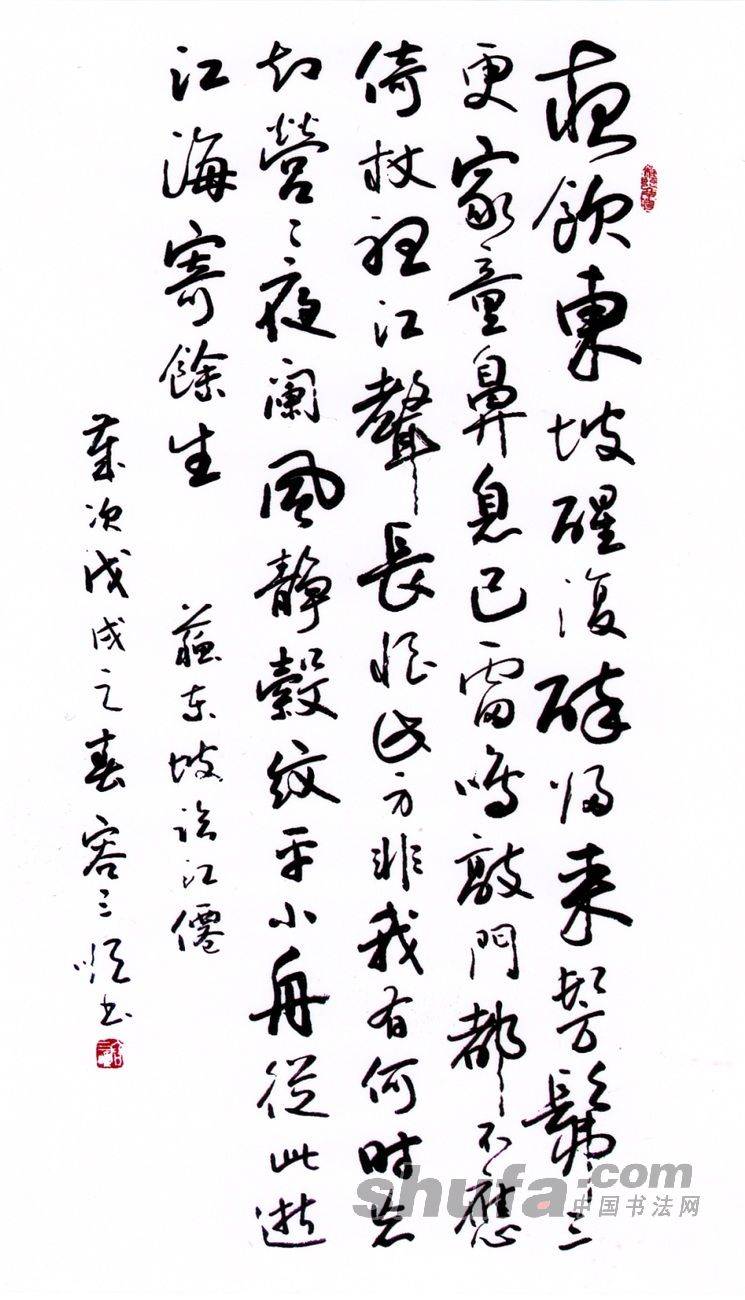 夜飲東坡醒復醉歸來髣髴三
更家童鼻息已雷鳴敲門都不應
倚杖聽江聲長恨此身非我有何時忘
却營〻夜闌風靜縠紋平小舟從此逝
江海寄餘生
蘇東坡臨江僊
歲次戊戌之春容三书
shufa.com
中国书法网